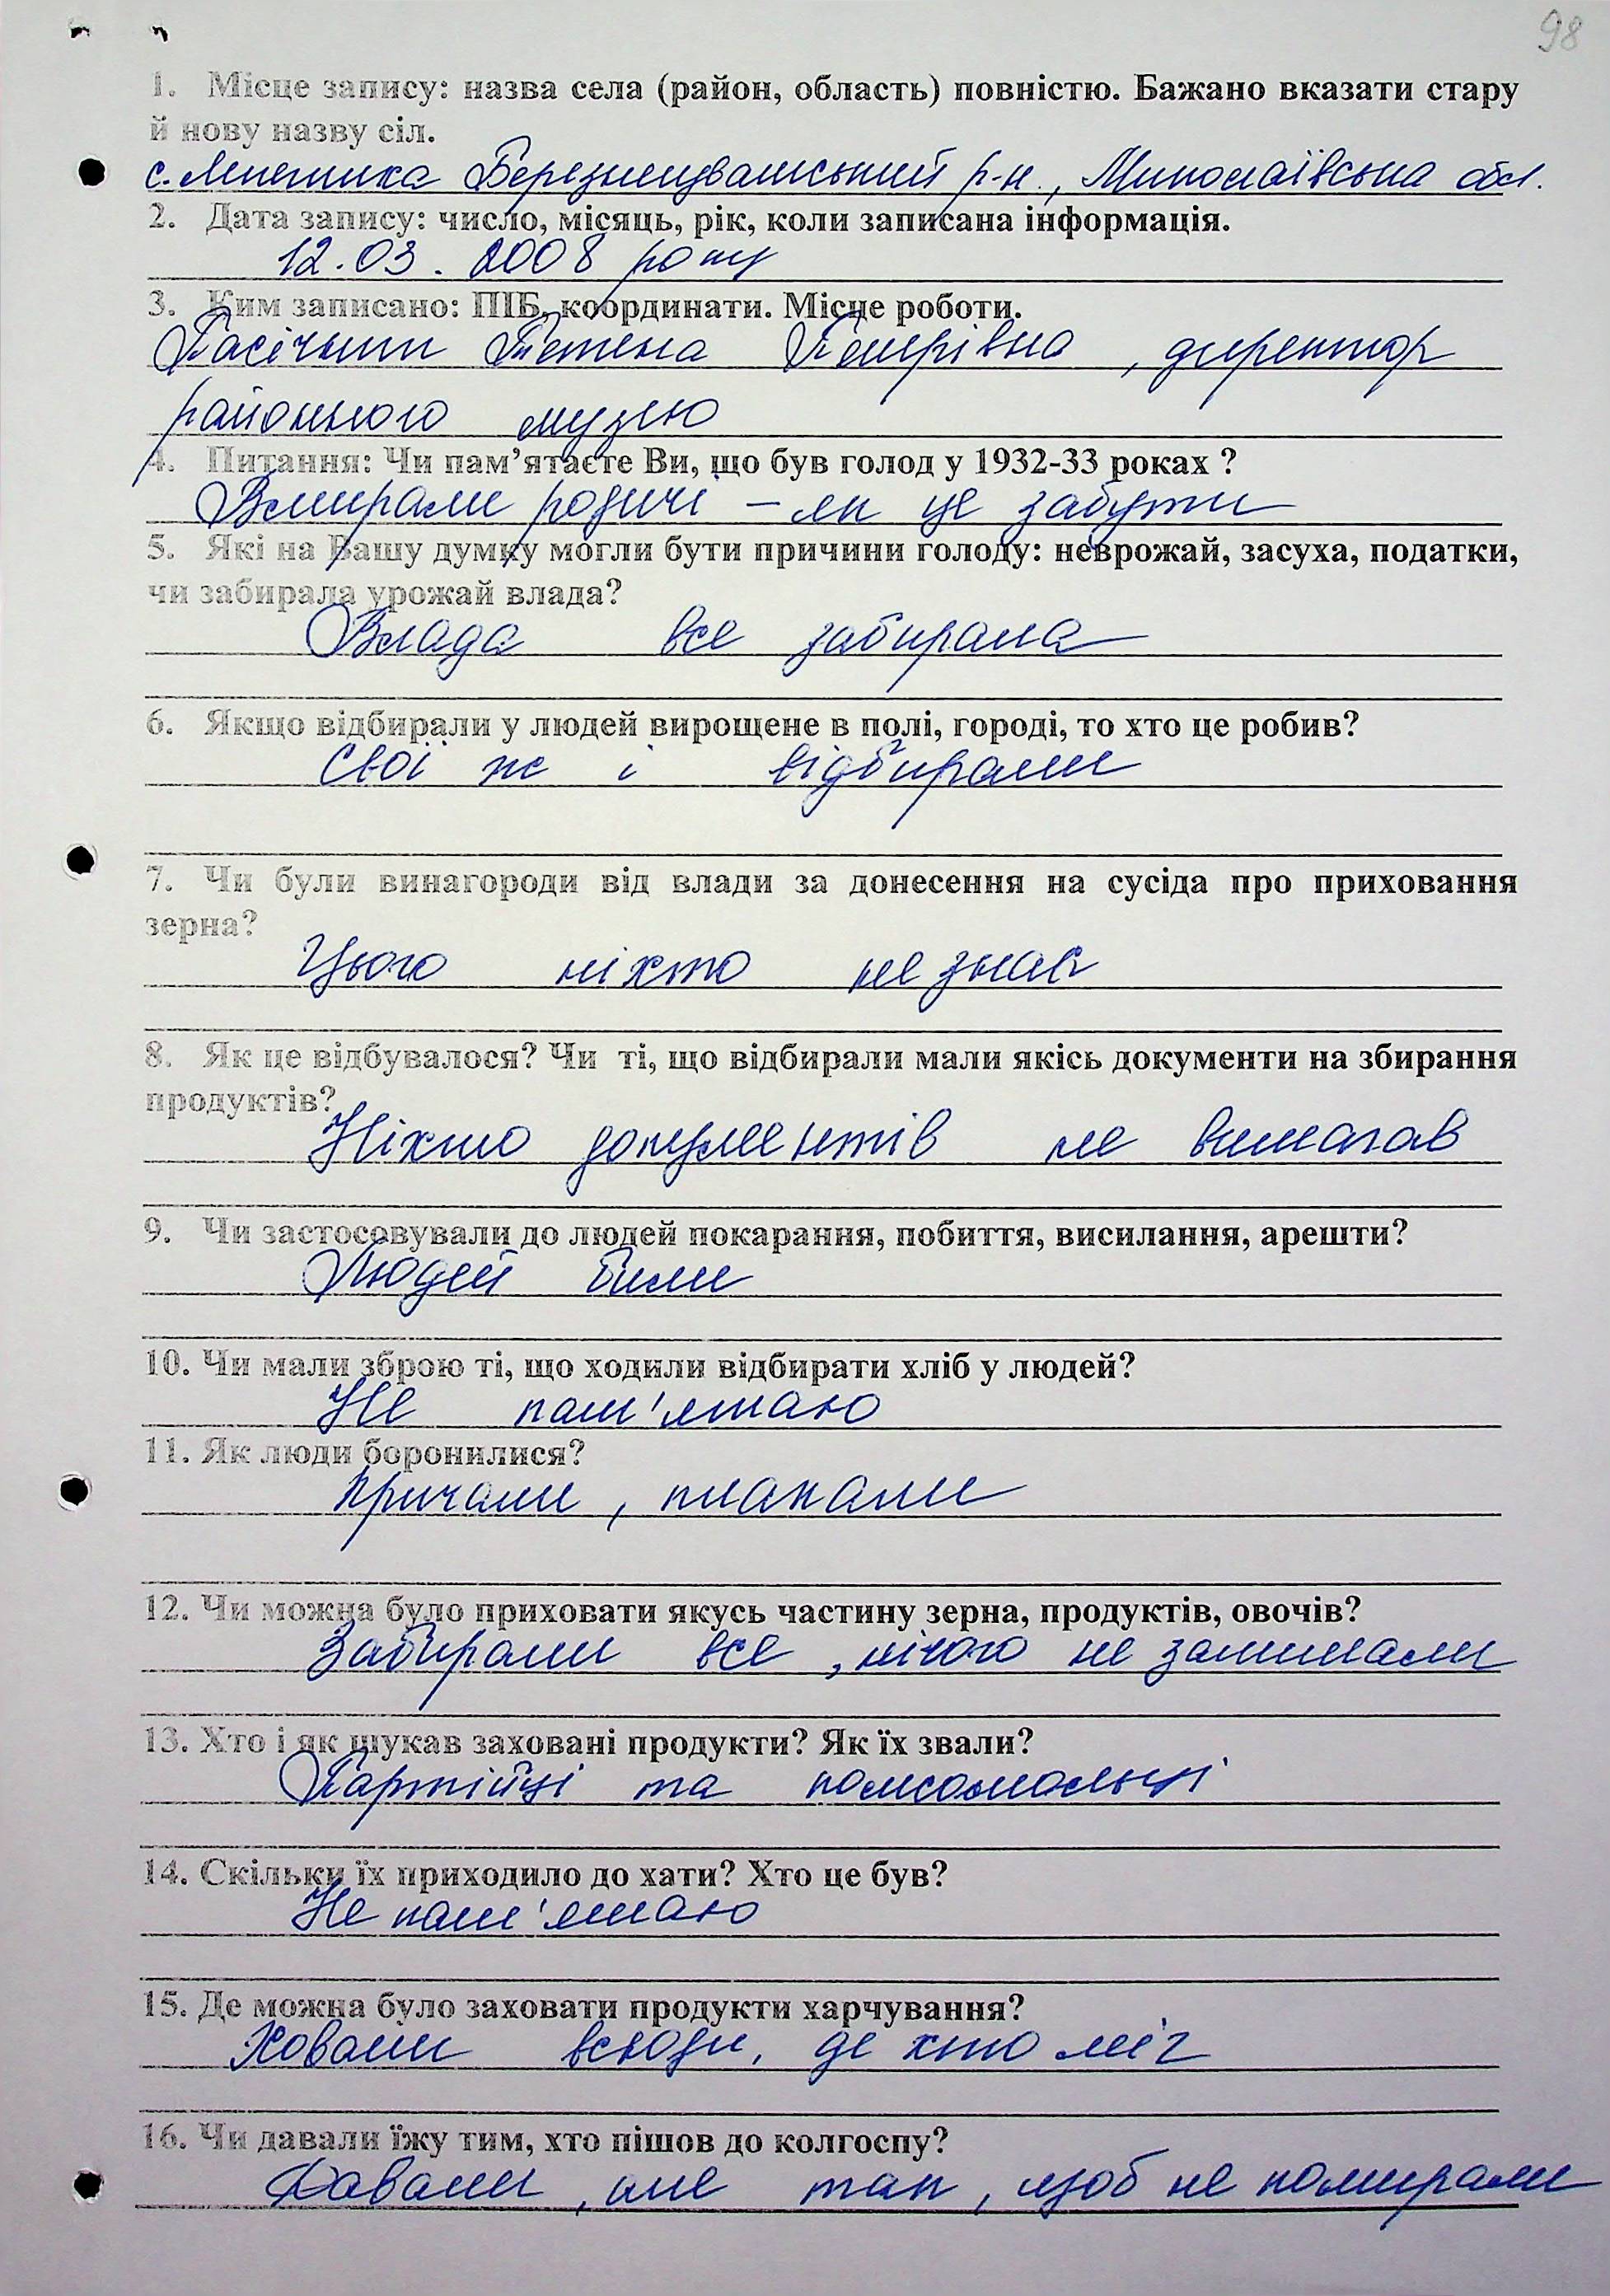 98
1. Місце запису: назва села (район, область) повністю. Бажано вказати стару
й нову назву сіл.
с. Березнегуватський р-н., Миколаївська обл.
2. Дата запису: число, місяць, рік, коли записана інформація.
12.03.2008 року
3. Ким записано: ПІБ, координати. Місце роботи.
Тетяна Валеріївна, директор
районного музею
4. Питання: Чи пам'ятаєте Ви, що був голод у 1932-33 роках ?
Вмирали родичі – як це забути
5. Які на Вашу думку могли бути причини голоду: неврожай, засуха, податки,
чи забирала урожай влада?
Влада все забирала
6. Якщо відбирали у людей вирощене в полі, городі, то хто це робив?
Свої ж і відбирали
7. Чи були винагороди від влади за донесення на сусіда про приховання
зерна?
Цього ніхто не знав
8. Як це відбувалося? Чи ті, що відбирали мали якісь документи на збирання
продуктів?
Ніхто документів не вимагав
9. Чи застосовували до людей покарання, побиття, висилання, арешти?
Людей били
10. Чи мали зброю ті, що ходили відбирати хліб у людей?
Не пам'ятаю
11. Як люди боронилися?
Кричали, плакали
12. Чи можна було приховати якусь частину зерна, продуктів, овочів?
Забирали все, нічого не залишали
13. Хто і як шукав заховані продукти? Як їх звали?
Партійці та комсомольці
14. Скільки їх приходило до хати? Хто це був?
Не пам'ятаю
15. Де можна було заховати продукти харчування?
Ховали всюди, де хто міг
16. Чи давали їжу тим, хто пішов до колгоспу?
Давали, але так, щоб не помирали